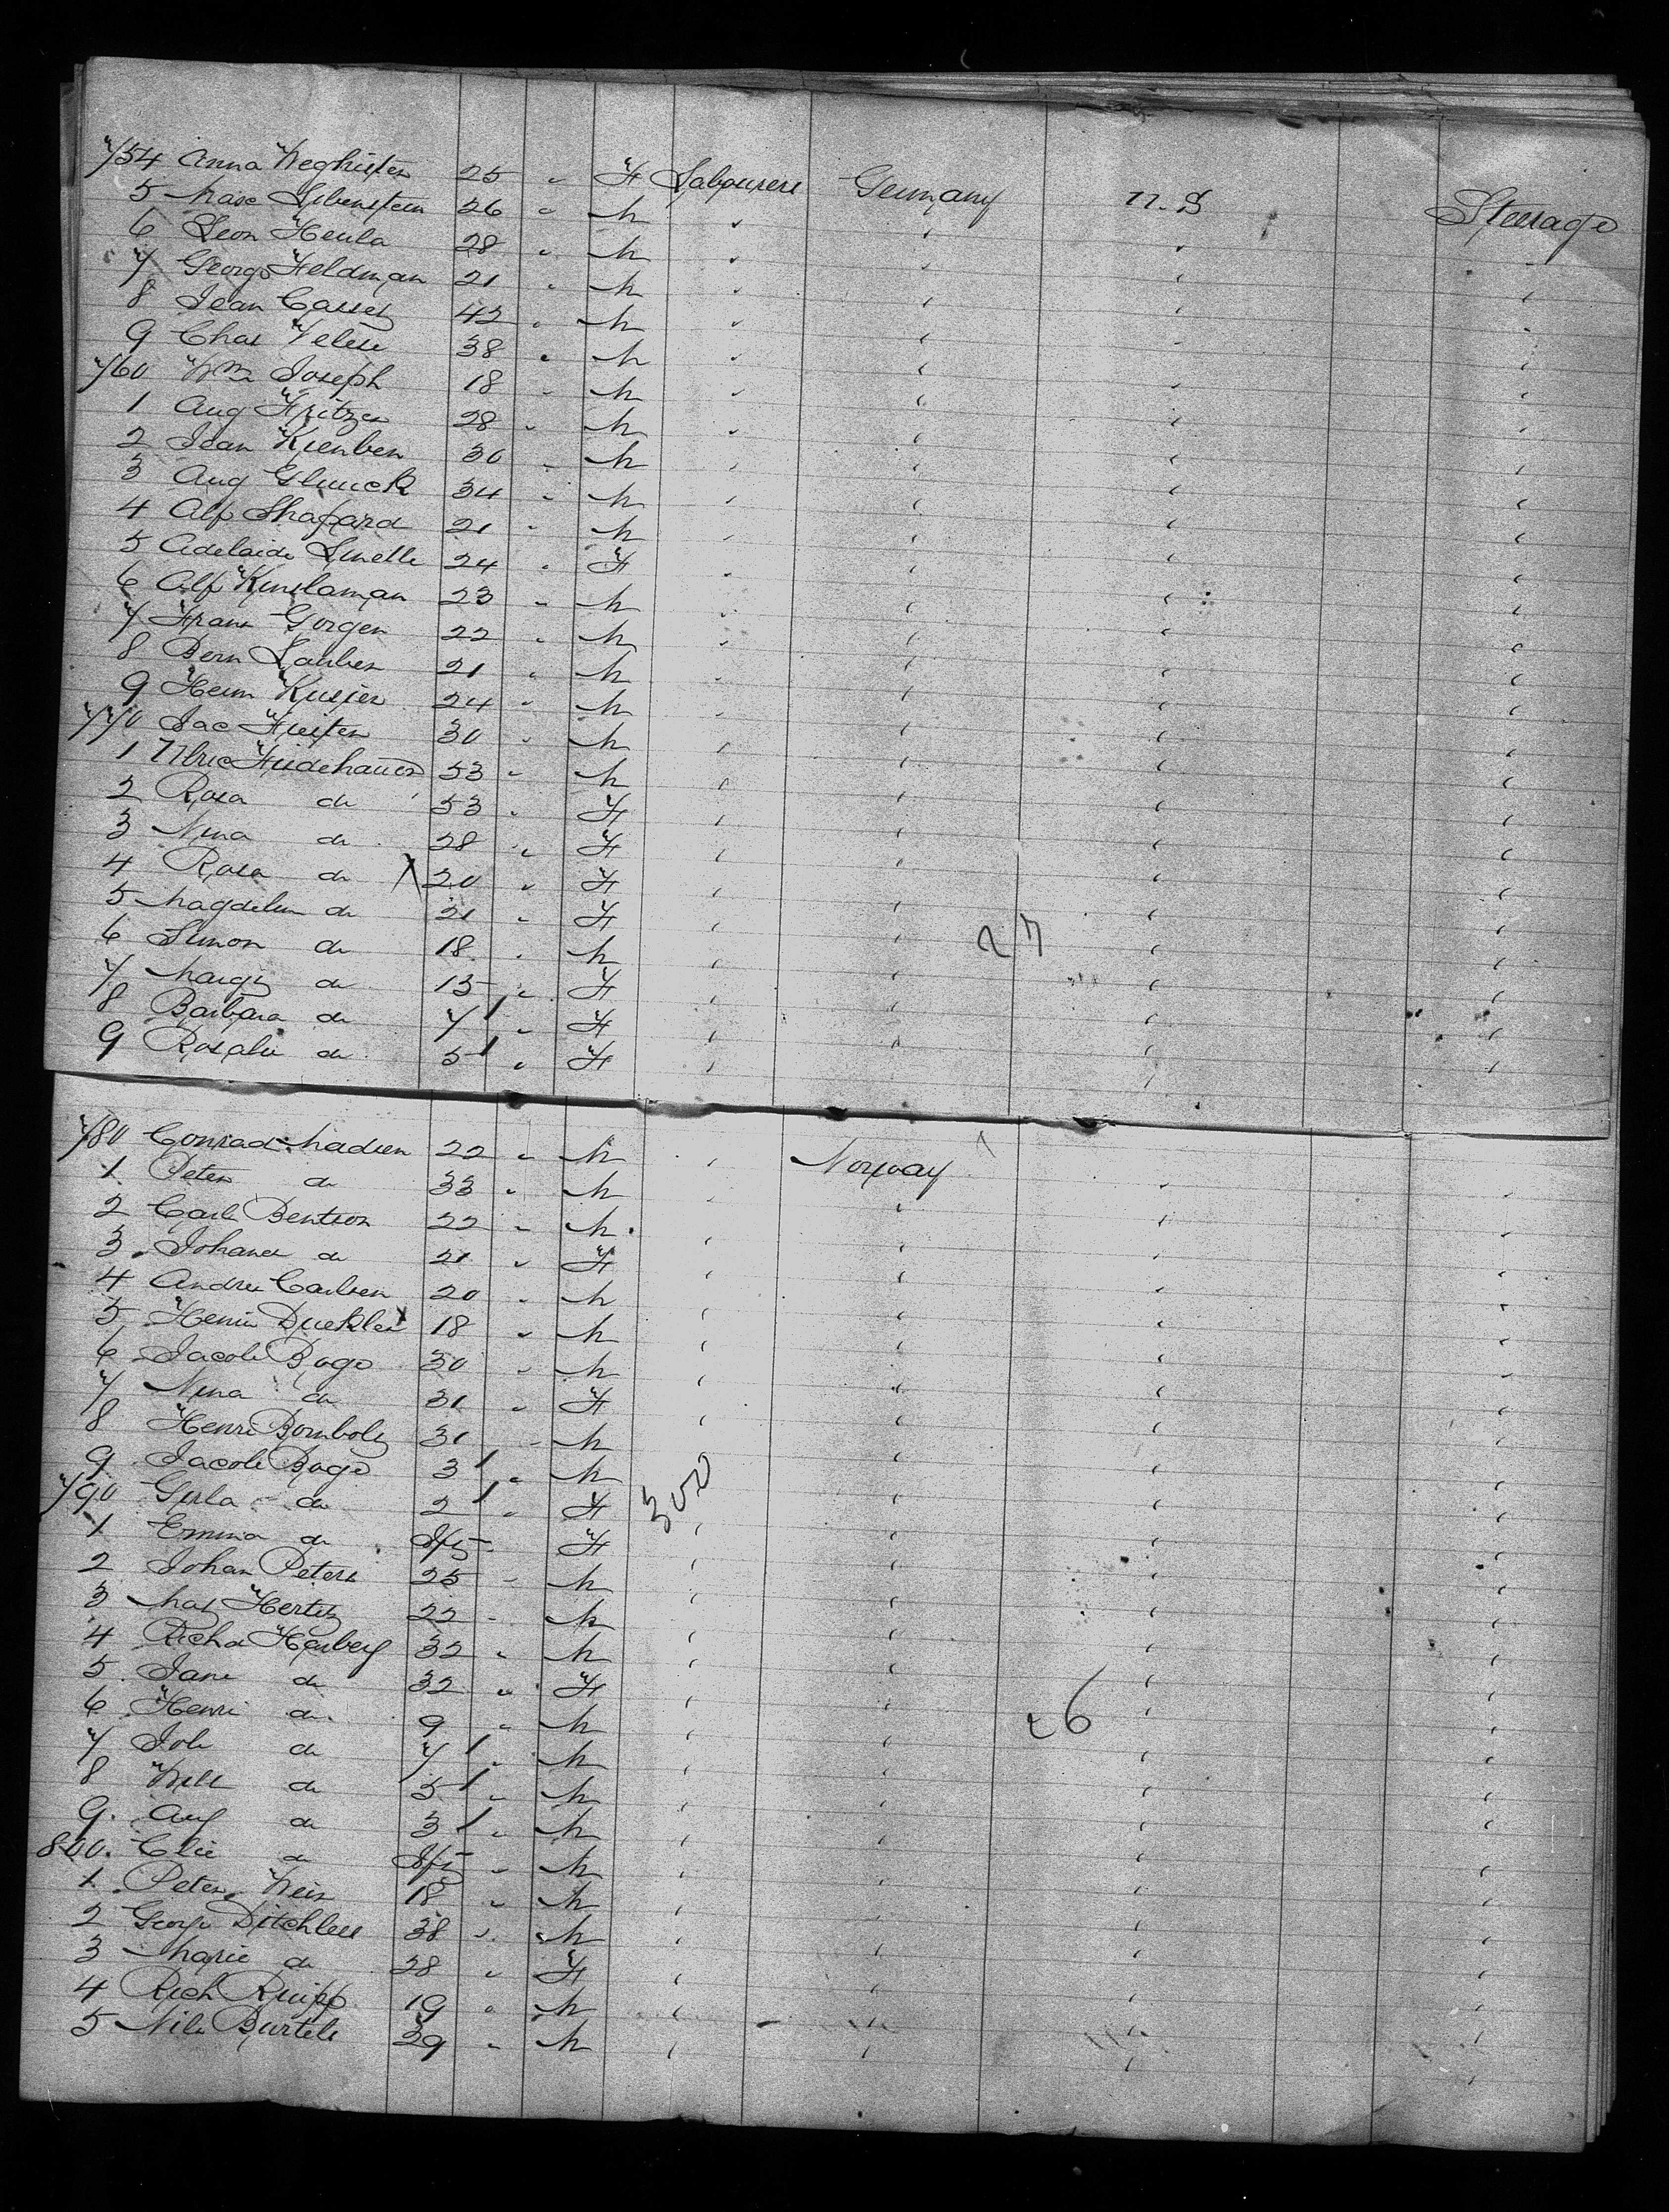 754 Anna Weghisten 25 " F Labourers Germany U.S Steerage
5 Max Libenstein 26 " M " " " "
6 Leon Heula 28 " M " " " "
7 George Feldman 21 " M " " " "
8 Jean Casset 42 " M " " " "
9 Chas 38 " M " " " "
760 Wm Joseph 18 " M " " " "
1 Aug Fritzen 28 " M " " " "
2 Jean Kienben 30 " M " " " "
3 Aug Glunck 34 " M " " " "
4 Alf Shapard 21 " M " " " "
5 Adelaide Linelle 24 " F " " " "
6 Alf Kinslaman 23 " M " " " "
7 Frans Gorgen 22 " M " " " "
8 Bern Lauben 21 " M " " " "
9 Herm Kusier 24 " M " " " "
770 Jac 30 " M " " " "
1 Ulric 53 " M " " " "
2 Rosa do 53 " F " " " "
3 Nina do 28 " F " " " "
4 Rosa do X 20 " F " " " "
5 Magdelen do 21 " F " " " "
6 Simon do 18 " M " " 27 " "
7 Margt do 13 " F " " " "
8 Barbara do 7 / " F " " " "
9 Rosalie do 5 / " F " " " "
780 Conrad Madsen 22 " M " Norway " "
1 Peter do 33 " M " " " "
2 Carl Bentson 22 " M " " " "
3 Johanes do 21 " F " " " "
4 Andreu Carlsen 20 " M " " " "
5 Henri Duekler x 18 " M " " " "
6 Jacob Bage 30 " M " " " "
7 Nina do 31 " F " " " "
8 Henri Bomboly 31 " M " " " "
9 Jacob Bage 3 / " M " " " "
790 Gerla do 2 / " F 300 " " " "
1 Emma do Inft F " " " "
2 Johan Peters 25 " M " " " "
3 Hertz 22 " M " " " "
4 Richd Harberg 32 " M " " " "
5 Jane do 32 " F " " " "
6 Henri do 9 " M " " 26 " "
7 Joh do 7 / " M " " " "
8 Will do 5 / " M " " " "
9 Aug do 3 / " M " " " "
800 Elie do Inft " M " " " "
1 Peter Wein 18 " M " " " "
2 George Ditchlere 38 " M " " " "
3 Marie do 28 " F " " " "
4 Rich Ruipp 19 " M " " " "
5 Nils Burtele 39 " M " " " "